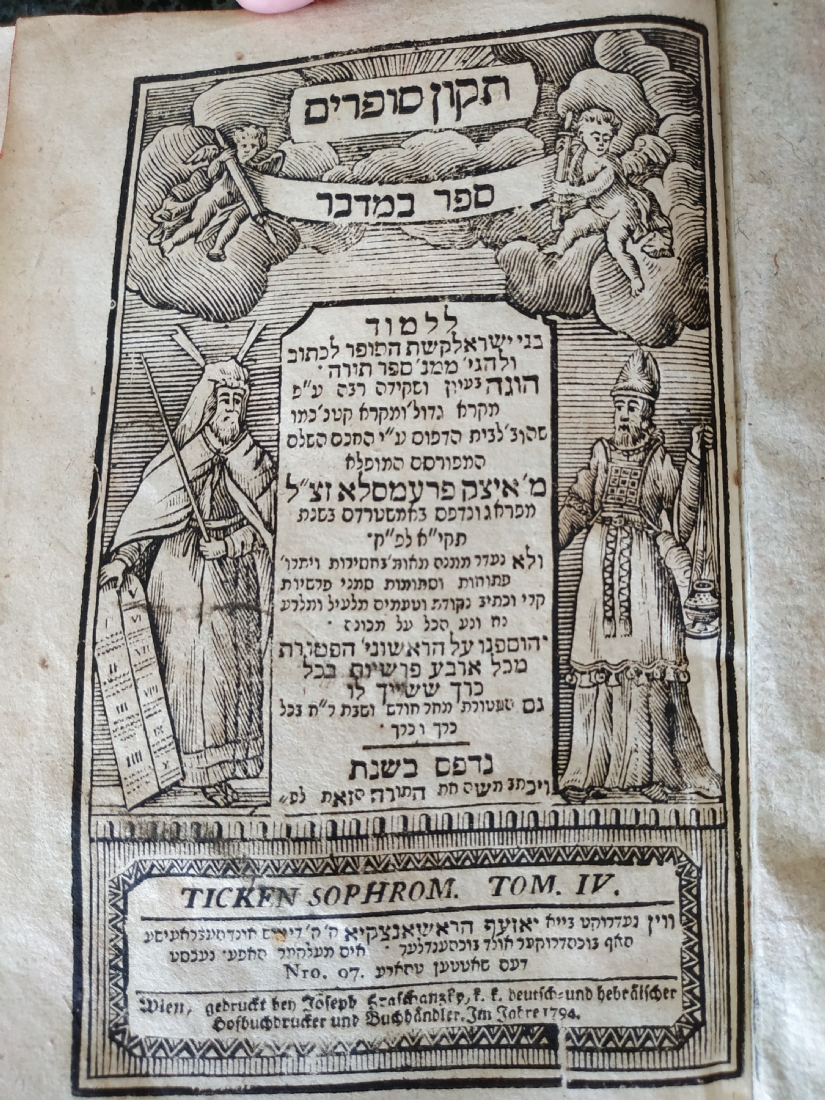 תקון סופרים
ספר במדבר
ללמוד
בני ישראל קשת הסופר לכתוב
ולהגי' ממנ' ספר תורה ·
הוגה בעיון ושקידה רבה ע"פ
מקרא גדול' ומקרא קטנ' כמו
שהוצ' לבית הדפוס ע"י החכם השלם
המפורסם המופלא
מ' איצק פרעמסלא זצ"ל
מפראג ונדפס באמשטרדם בשנת
תקי"א לפ"ק ·
ולא נעדר ממנה מאות' בחסירות ויתרו'
פתוחות וסתומות סמני פרשיות
קרי וכתיב נקודת וטעמים מלעיל ומלרע
נח ונע הכל על תכונה
הוספנו על הראשוני' הפטורת
מכל ארבע פרשיות בכל
כרך ששייך לו
גם הפטורת מחר חודש ושבת ר"ח בכל
כרך וכרך ·
נדפס בשנת
ויכתב משה את התורה הזאת לפ"
TICKEN SOPHROM. TOM. IV.
ווין געדרוקט בייא יאזעף הראשאנצקיא ק' ק' דייטש אונד העברעאישע
האף בוכדרוקער אונד בוכהענדלער
דעם
Nro. 97.
Wien, gedruckt bey Joseph Hraschanzky, k. k. deutsch- und hebräischer
Hofbuchdrucker und Buchhändler. Im Jahre 1794.
I
II
III
IIII
V
VI
VII
VIII
X